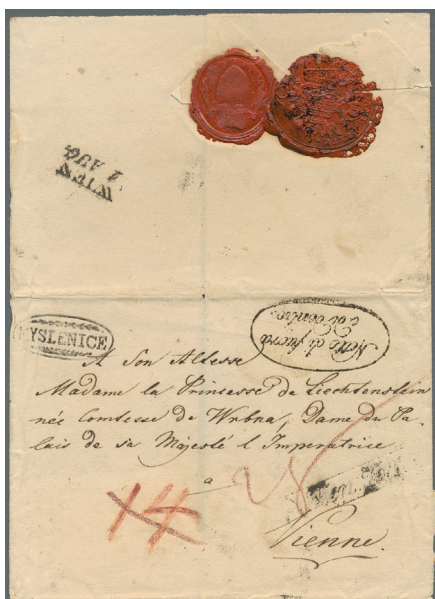 WIEN
2 AUG
MYSLENICE
Netto di fuora
e di dentro
A Son Altesse
Madame la Princesse de Liechtenstein
née Comtesse de Wrbna, Dame du Pa-
lais de sa Majesté l'Imperatrice
a
14
Vienne.